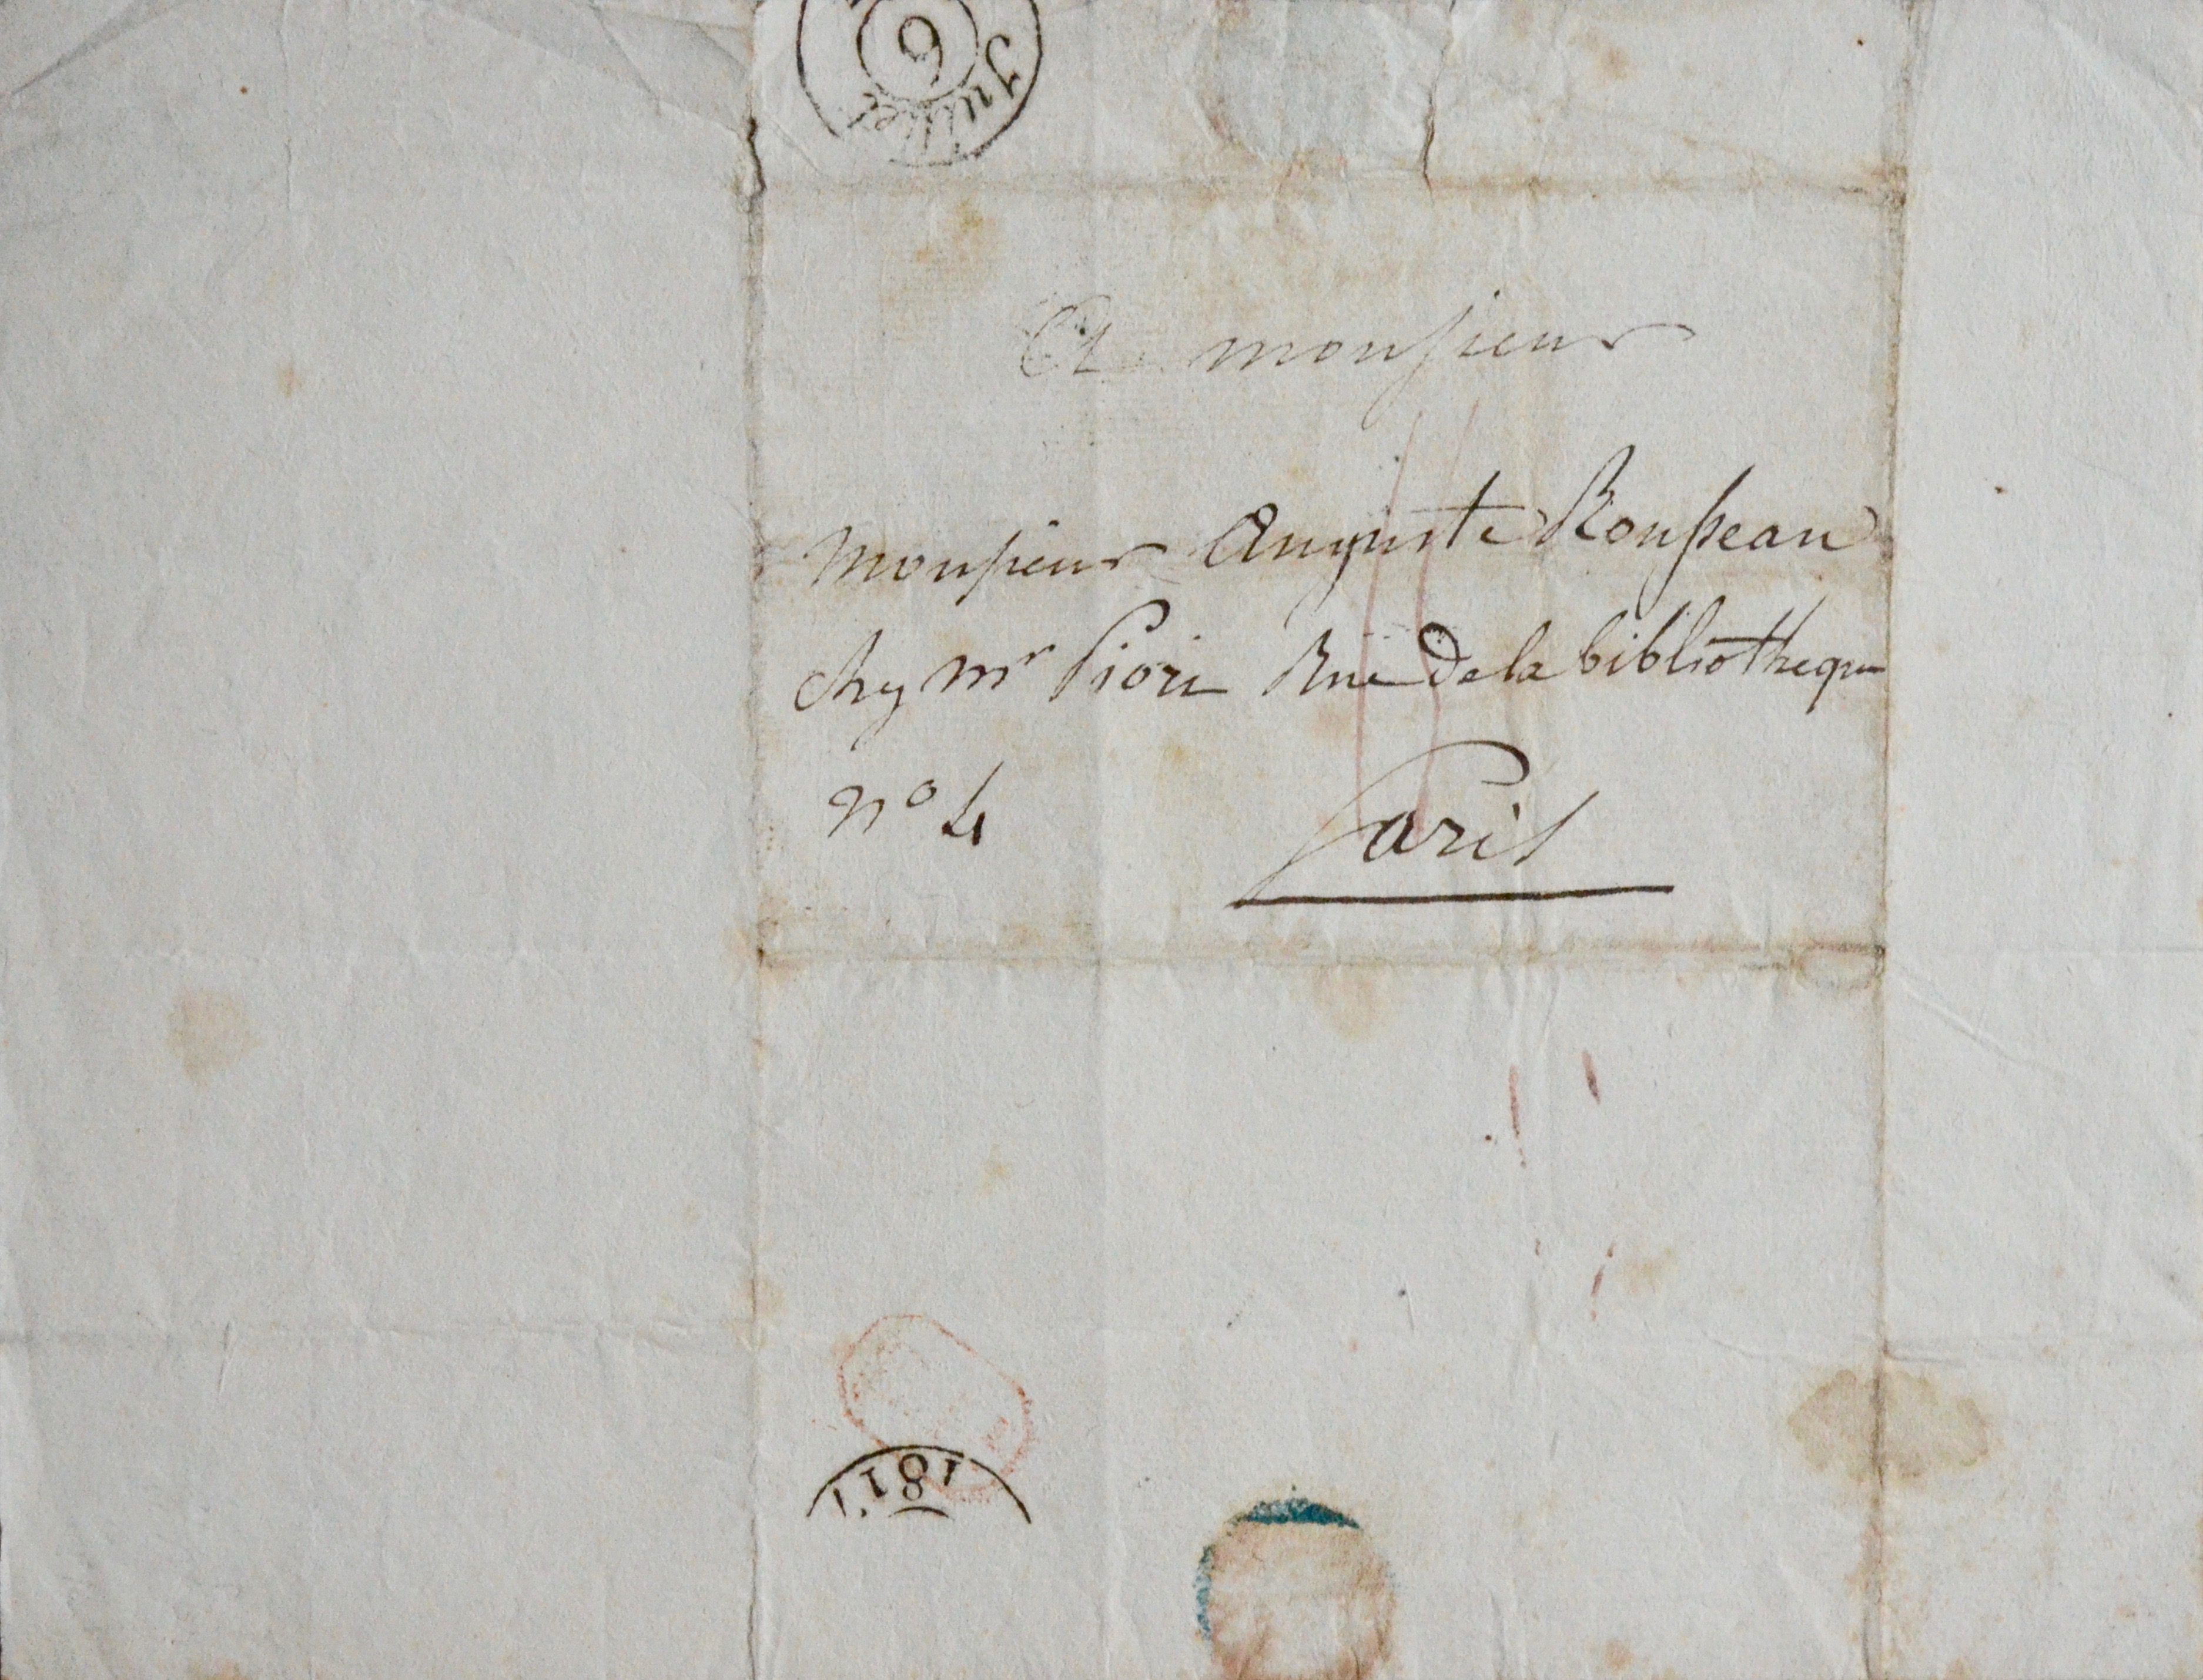 6
Juillet
A monsieur
monsieur Auguste Rousseau
chez mr Rue de la bibliotheque
no 4
Paris
1817